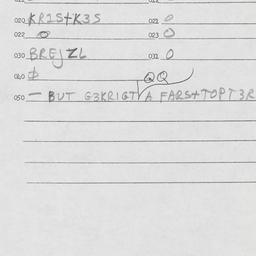 020 KR1S+K3S 021 0
022 0 023 0
030 BREJZL 031 0
040 ф QQ
050 — BUT G3KR1GT A FARS+TOPT3R